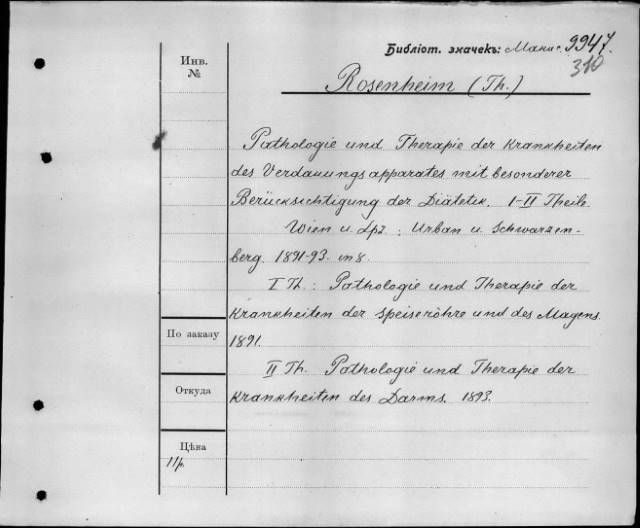 Библіот. значекъ: Манис. 9947.
310
Инв.
№
Rosenheim (Th.)
Pathologie und Therapie der Krankheiten
des Verdauungsapparates mit besonderer
Berücksichtigung der Diätetik. I-II Theile.
Wien u. Lpz.: Urban u. Schwarzen-
berg. 1891-93. in 8.
I Th.: Pathologie und Therapie der
Krankheiten der Speiseröhre und des Magens.
1891.
II Th. Pathologie und Therapie der
Krankheiten des Darms. 1893.
По заказу
Откуда
Цѣна
11р.